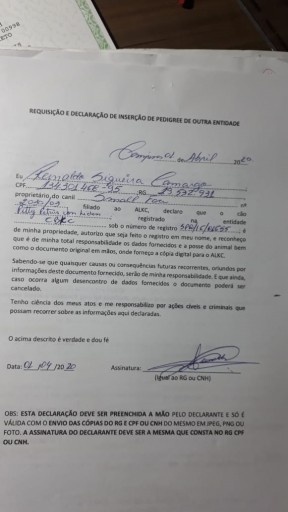 REQUISIÇÃO E DECLARAÇÃO DE INSERÇÃO DE PEDIGREE DE OUTRA ENTIDADE
de Abril 2020
Eu Reinaldo Siqueira Camargo
CPF RG
proprietário do canil Small nº
filiado ao ALKC, declaro que o cão
registrado na entidade
CBKC sob o número de registro é
de minha propriedade, autorizo que seja feito o registro em meu nome, e reconheça
que é de minha total responsabilidade os dados fornecidos e a posse do animal bem
como o documento original em mãos, onde forneço a cópia digital para o ALKC.
Sabendo-se que quaisquer causas ou consequências futuras recorrentes, oriundos por
informações deste documento fornecido, serão de minha responsabilidade. E que ainda,
caso ocorra algum desencontro de dados fornecidos o documento poderá ser
cancelado.
Tenho ciência dos meus atos e me responsabilizo por ações cíveis e criminais que
possam recorrer sobre as informações aqui declaradas.
O acima descrito é verdade e dou fé
Data: 01/04/2020 Assinatura:
(Igual ao RG ou CNH)
OBS: ESTA DECLARAÇÃO DEVE SER PREENCHIDA A MÃO PELO DECLARANTE E SÓ É
VÁLIDA COM O ENVIO DAS CÓPIAS DO RG E CPF OU CNH DO MESMO EM JPEG, PNG OU
FOTO. A ASSINATURA DO DECLARANTE DEVE SER A MESMA QUE CONSTA NO RG CPF
OU CNH.